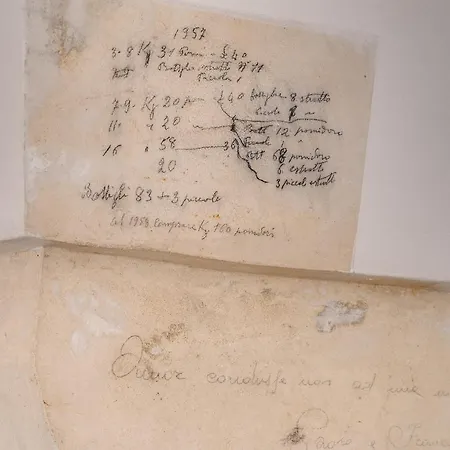 1957
3-8 Kg 31 Pomi £ 40
Bottiglie estratto N° 11
Piccola 1
79 Kg 20 £ 40 Bottiglie 8 estratto
11 " 20 Bott 12 pomidoro
16 " 58 36 Piccole 1
20 Bott 68 pomidoro
6 estratto
3 piccole estratto
Bottigli 83 + 3 piccole
al 1958 comprare Kg 160 pomidori
Amor condusse noi ad una
Paolo e Francesca